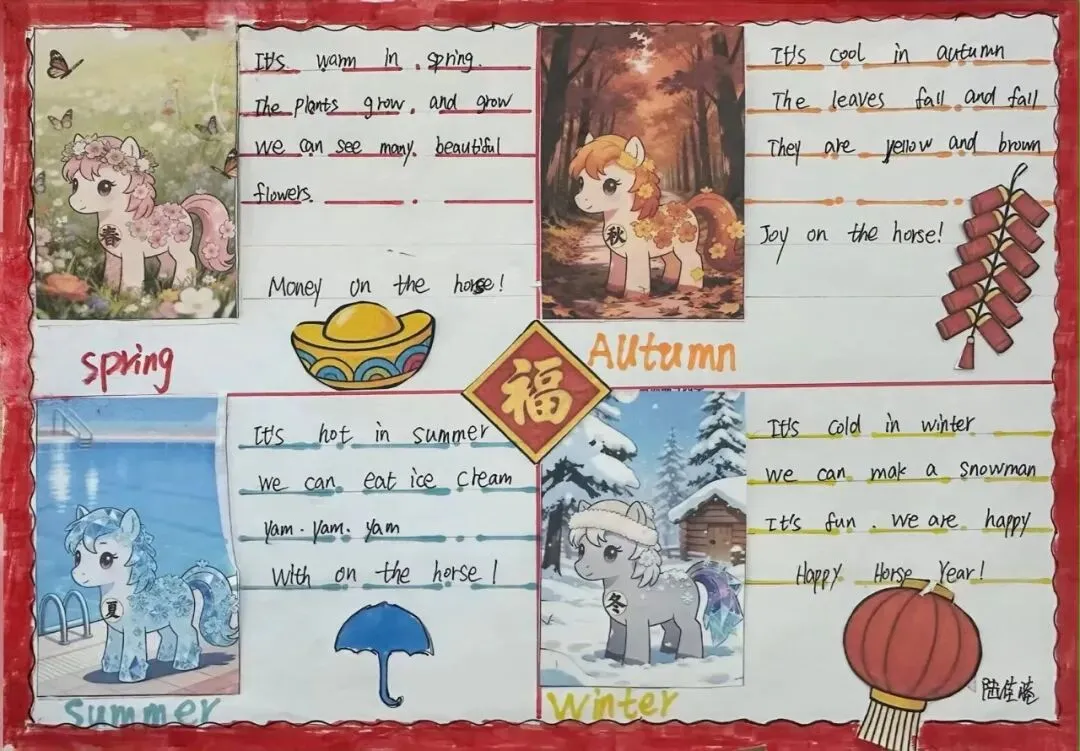 It's warm in spring.
The plants grow. and grow
We can see many. beautiful
flowers.
Money on the horse!
春
spring
It's cool in autumn
The leaves fall and fall
They are yellow and brown
Joy on the horse!
秋
Autumn
福
It's hot in summer
We can eat ice cream
yam. yam. yam
With on the horse!
夏
Summer
It's cold in winter
We can mak a snowman
It's fun. We are happy
Happy Horse Year!
冬
Winter